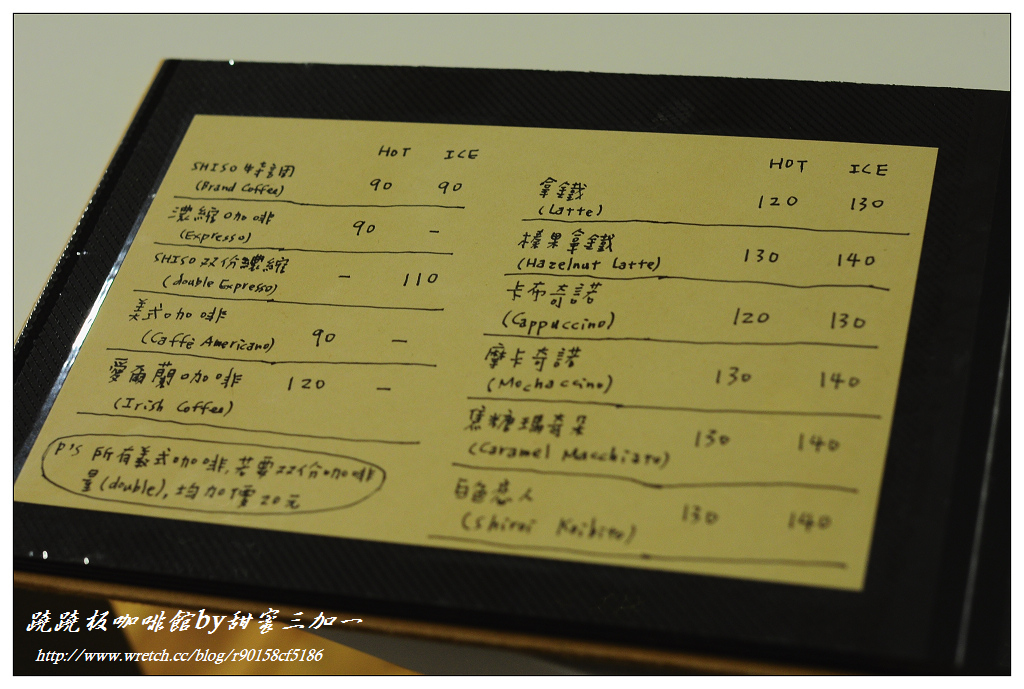 HOT ICE
SHISO特調 90 90
(Brand Coffee)
濃縮咖啡 90 -
(Expresso)
SHISO双份濃縮 - 110
(double Expresso)
美式咖啡 90 -
(Caffè Americano)
愛爾蘭咖啡 120 -
(Irish Coffee)
P'S 所有義式咖啡,若要双份咖啡
量(double),均加價20元
HOT ICE
拿鐵 120 130
(Latte)
榛果拿鐵 130 140
(Hazelnut Latte)
卡布奇諾 120 130
(Cappuccino)
摩卡奇諾 130 140
(Mochaccino)
焦糖瑪奇朵 130 140
(Caramel Macchiato)
白色戀人 130 140
(Shiroi Koibito)
蹺蹺板咖啡館by甜蜜三加一
http://www.wretch.cc/blog/r90158cf5186